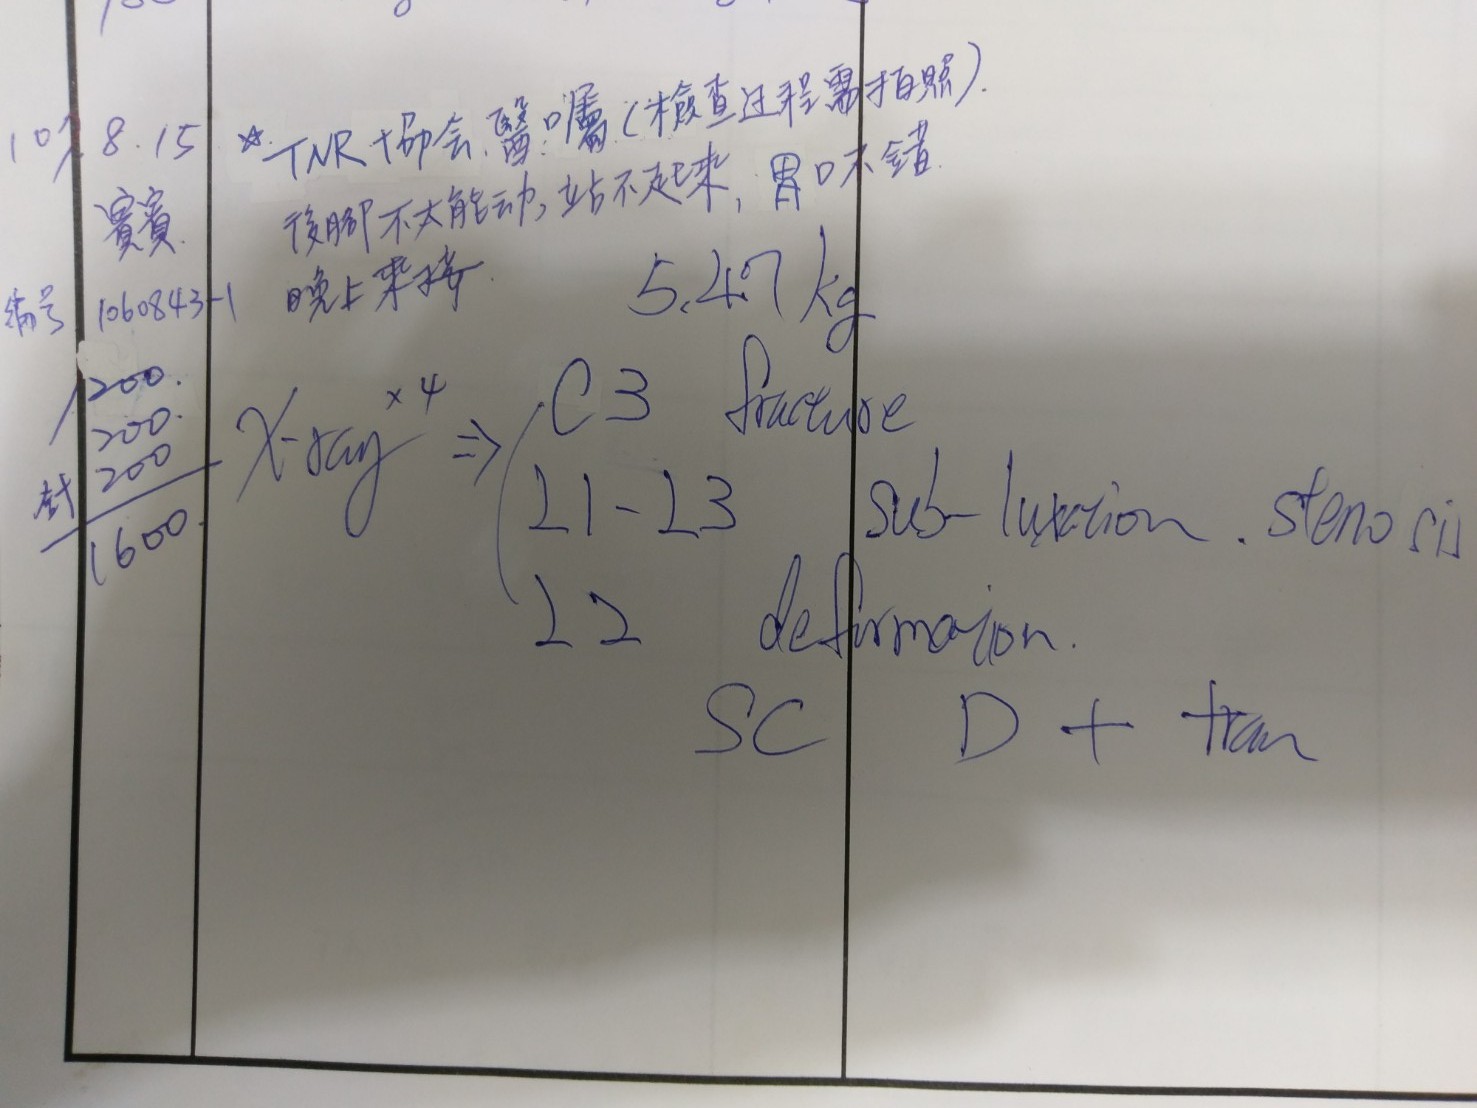 8.15
賓賓
編号 1060843-1
1200.
200.
針 200
1600.
☆ TNR 协会.醫.囑(檢查过程需拍照).
後腳不太能动,站不起来,胃口不錯.
晚上來接.
5.47 kg
X-ray ×4 ⇒ C3 fracture
L1-L3 sub-luxation. stenosis
L2 deformation.
SC D + tran